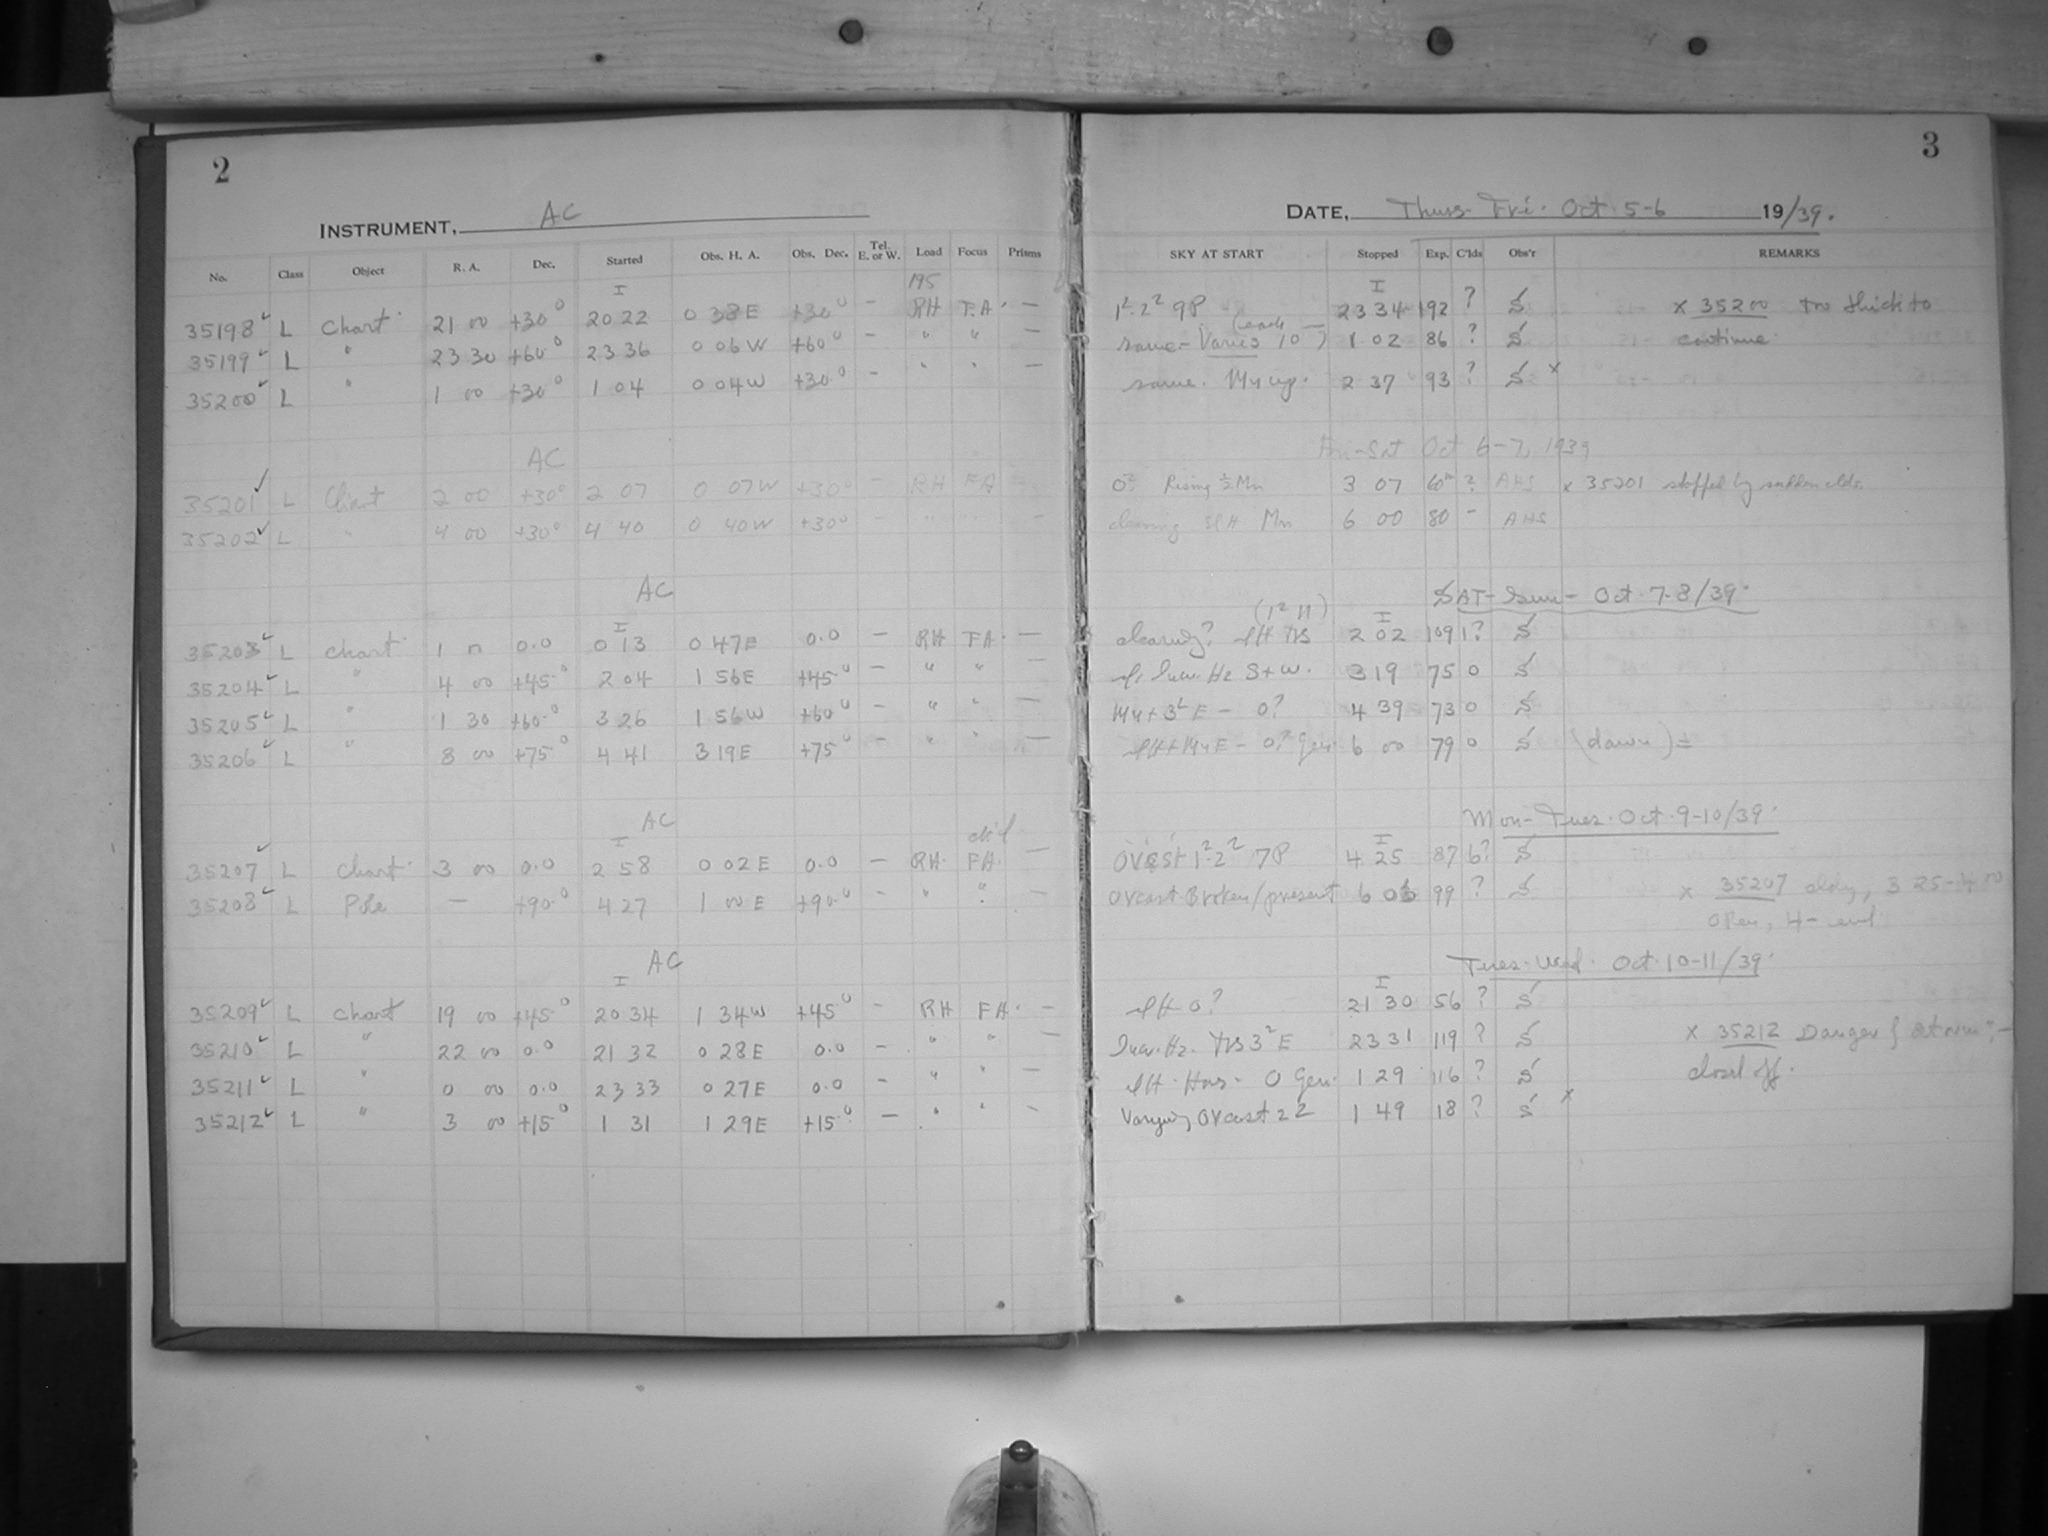 2
INSTRUMENT, AC
No. Class Object R. A. Dec. Started Obs. H. A. Obs. Dec. Tel. E. or W. Load Focus Prisms
I 195
35198 L Chart 21 00 +30° 20 22 0 38E +30° - RH F.A. -
35199 L " 23 30 +60° 23 36 0 06W +60° - " " -
35200 L " 1 00 +30° 1 04 0 04W +30° - " " -
AC
35201 L Chart 2 00 +30° 2 07 0 07W +30° - RH FA -
35202 L " 4 00 +30° 4 40 0 40W +30° - " -
AC
I
35203 L Chart 1 0.0 0 13 0 47E 0.0 - RH FA -
35204 L " 4 00 +45° 2 04 1 56E +45° - " " -
35205 L " 1 30 +60° 3 26 1 56W +60° - " " -
35206 L " 8 00 +75° 4 41 3 19E +75° - " " -
AC
I
35207 L Chart 3 00 0.0 2 58 0 02E 0.0 - RH FA -
35208 L Pole - +90° 4 27 1 00E +90° - " " -
AC
I
35209 L Chart 19 00 +45° 20 34 1 34W +45° - RH FA -
35210 L " 22 00 0.0 21 32 0 28E 0.0 - " " -
35211 L " 0 00 0.0 23 33 0 27E 0.0 - " " -
35212 L " 3 00 +15° 1 31 1 29E +15° - " " -
3
DATE, Thurs-Fri. Oct. 5-6 19/39.
SKY AT START Stopped Exp. C'lds Obs'r REMARKS
I
1²-2² 9P 23 34 192 ? S x 35200 too thick to
same - Varies 10 1 02 86 ? S continue
same. 2 37 93 ? S x
Fri-Sat Oct 6-7, 1939
0? Rising ½ Mn 3 07 60m ? AHS x 35201 stopped by sudden clds.
clearing Mn 6 00 80 - AHS
SAT-Sun- Oct. 7-8/39.
(1² H) I
clearing? 2 02 109 1? S
Hz S+W. 3 19 75 0 S
E - 0? 4 39 73 0 S
E - 0? Gen. 6 00 79 0 S (dawn)±
Mon-Tues. Oct. 9-10/39.
I
Ovcst 1²-2² 7P 4 25 87 6? S
Ovcast Broken/present 6 06 99 ? S x 35207 cldy, 3 25-4 00
open, 4-end
Tues-Wed. Oct. 10-11/39.
I
0? 21 30 56 ? S
Hz. 3² E 23 31 119 ? S x 35212 Danger
0 Gen. 1 29 116 ? S closed off.
Varying Ovcast 2 2 1 49 18 ? S x